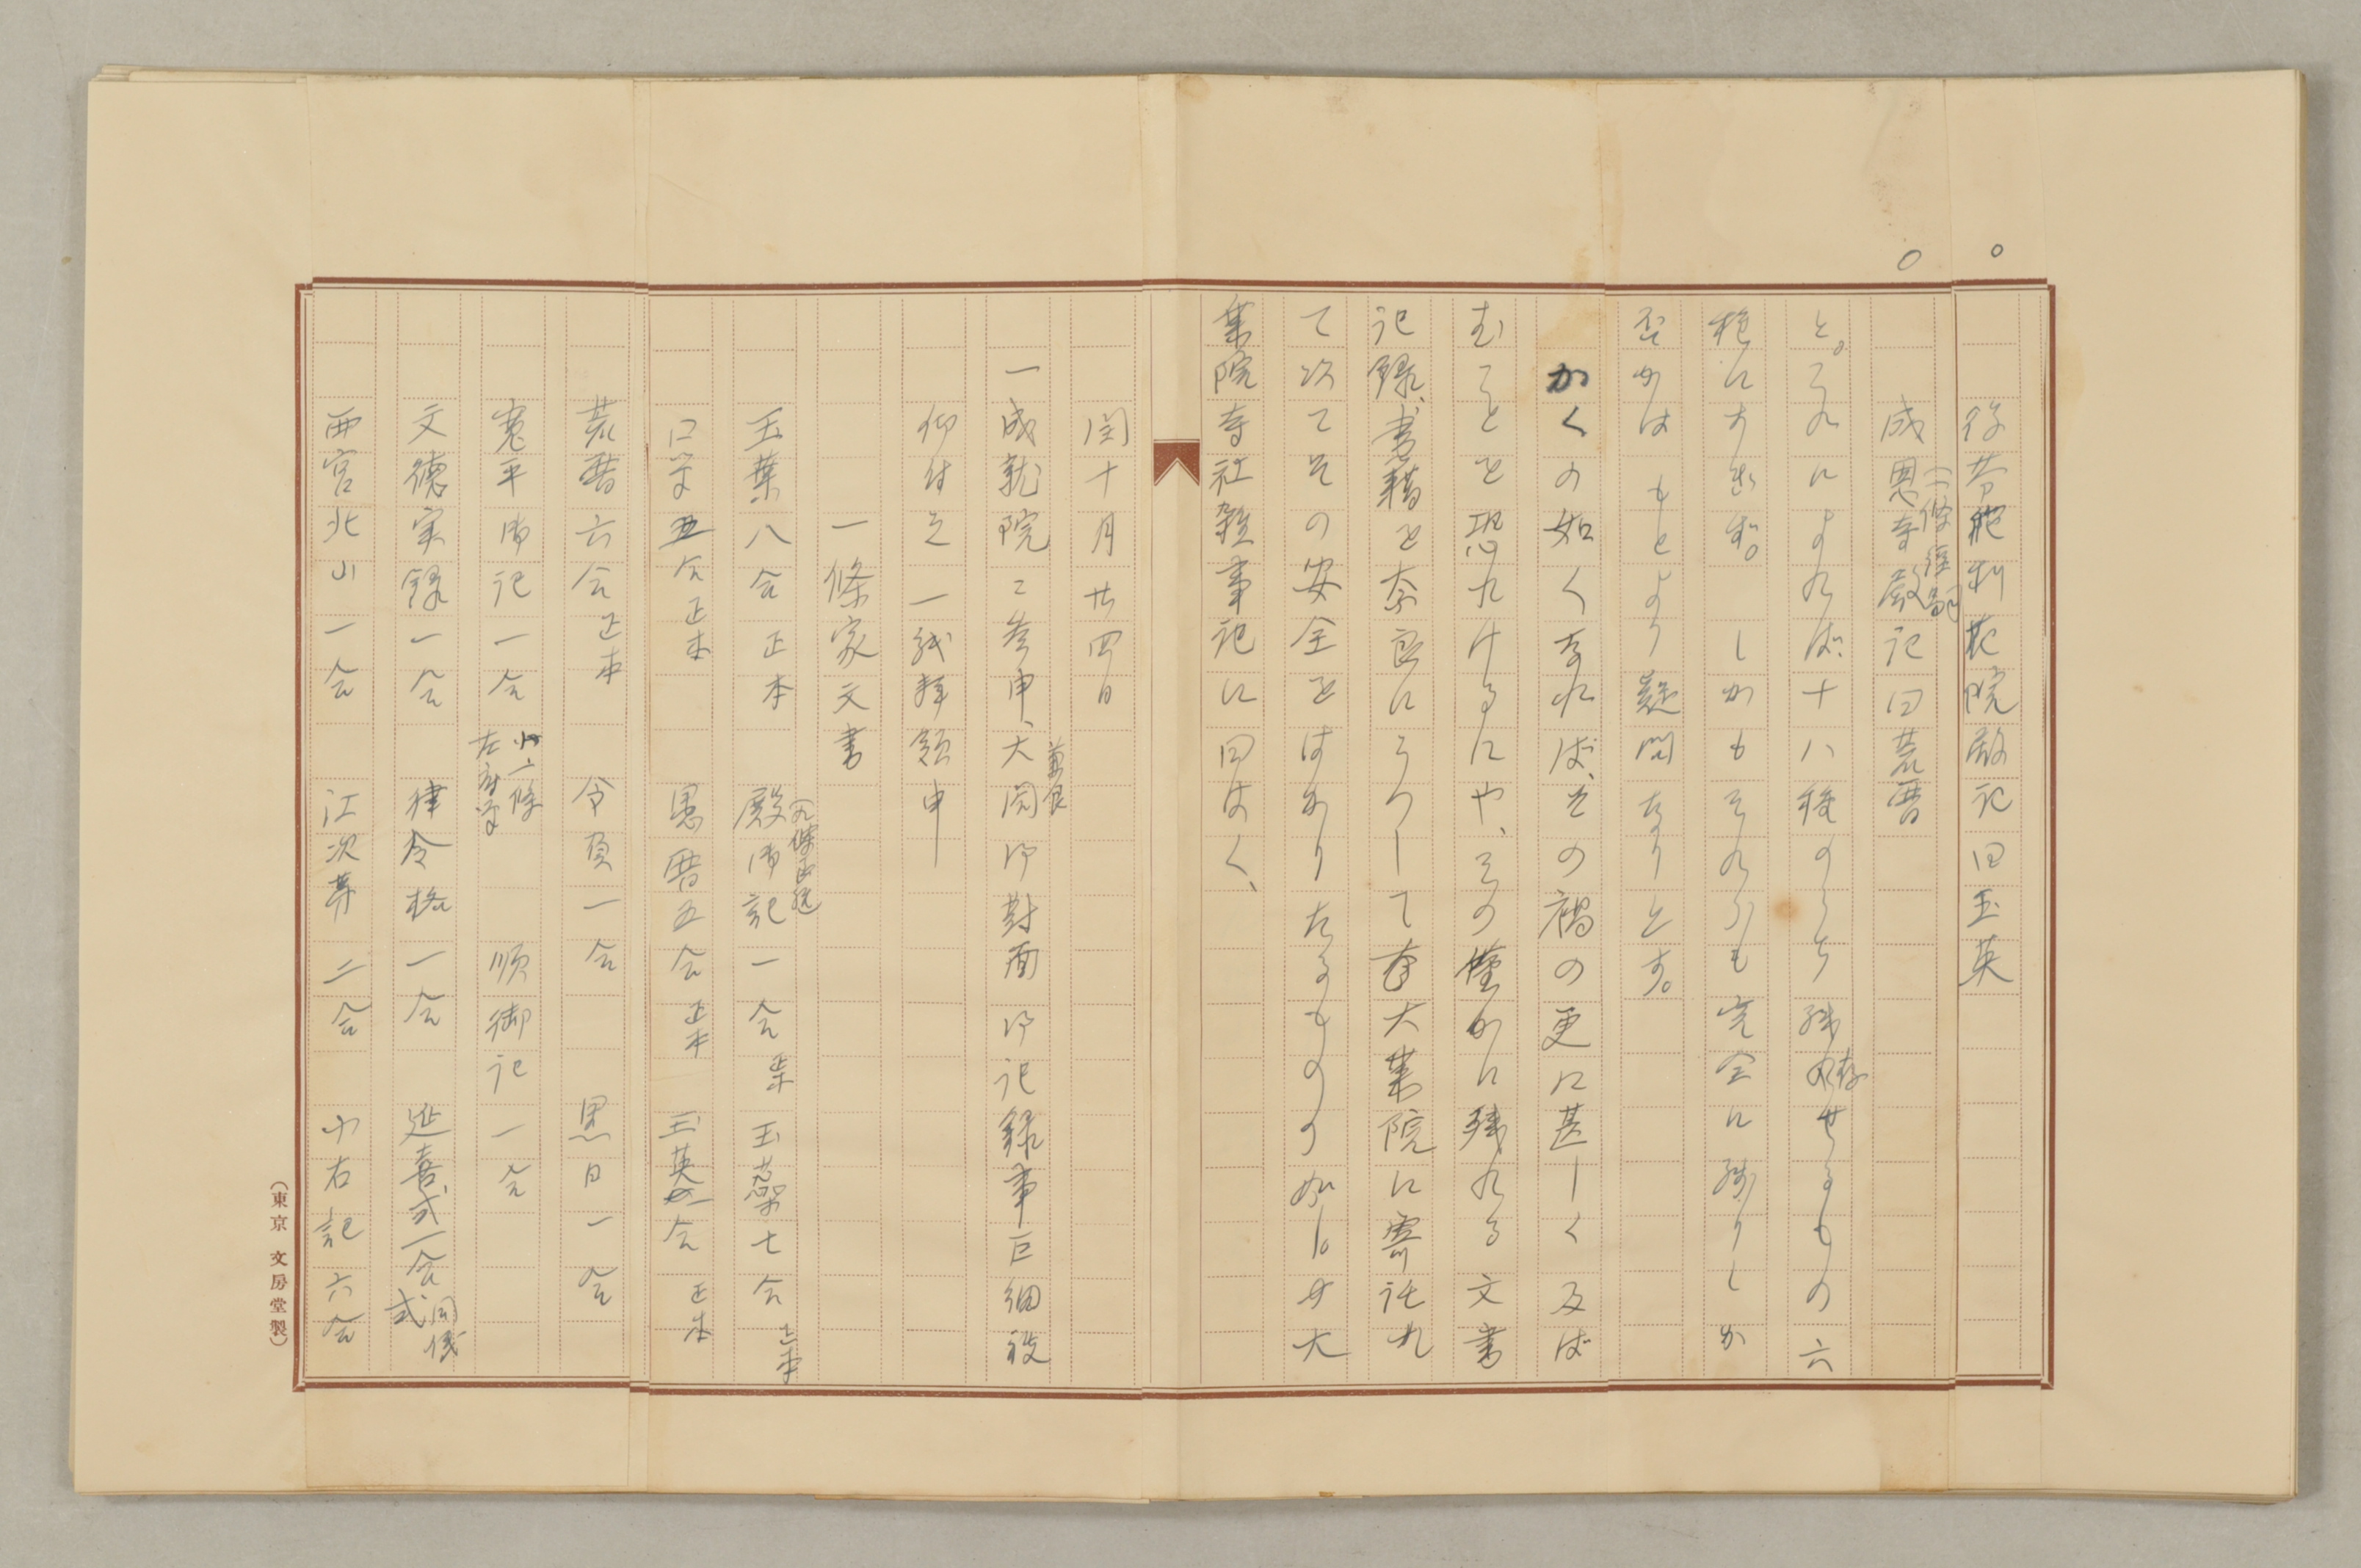 。
後芬陀利花院殿記曰玉英
○
成恩寺殿記曰荒暦
(一條経嗣)
と。これによれば、十八種のうち残存せるもの六
種にすぎず。しかもそれらも完全に残りしか
否かはもとより疑問なりとす。
かくの如くなれば、その禍の更に甚しく及ば
むことを恐れけるにや、その僅かに残れる文書
記録、書籍を奈良にうつして大葉院に寄託れ
て以てその安全をはかりたるものの如し。大
葉院寺社雑事記に曰はく、
閏十月廿四日
一成就院ニ参申、大閤御対面御記録事巨細被
兼良
仰付之 一紙拝領申
一條家文書
玉葉八合 正本 殿御記一合 正本 玉蘂七合 正本
(九條
口筆五合 正本 愚暦五合 正本 玉英 合 正本
荒暦六合 正本 令 一合 黒日一合
寛平御記一合 順御記一合
小一條
左府
文徳実録一合 律令格一合 延喜式一合 同儀
式
西宮北山一合 江次第二合 小右記六合
(東京 文房堂製)